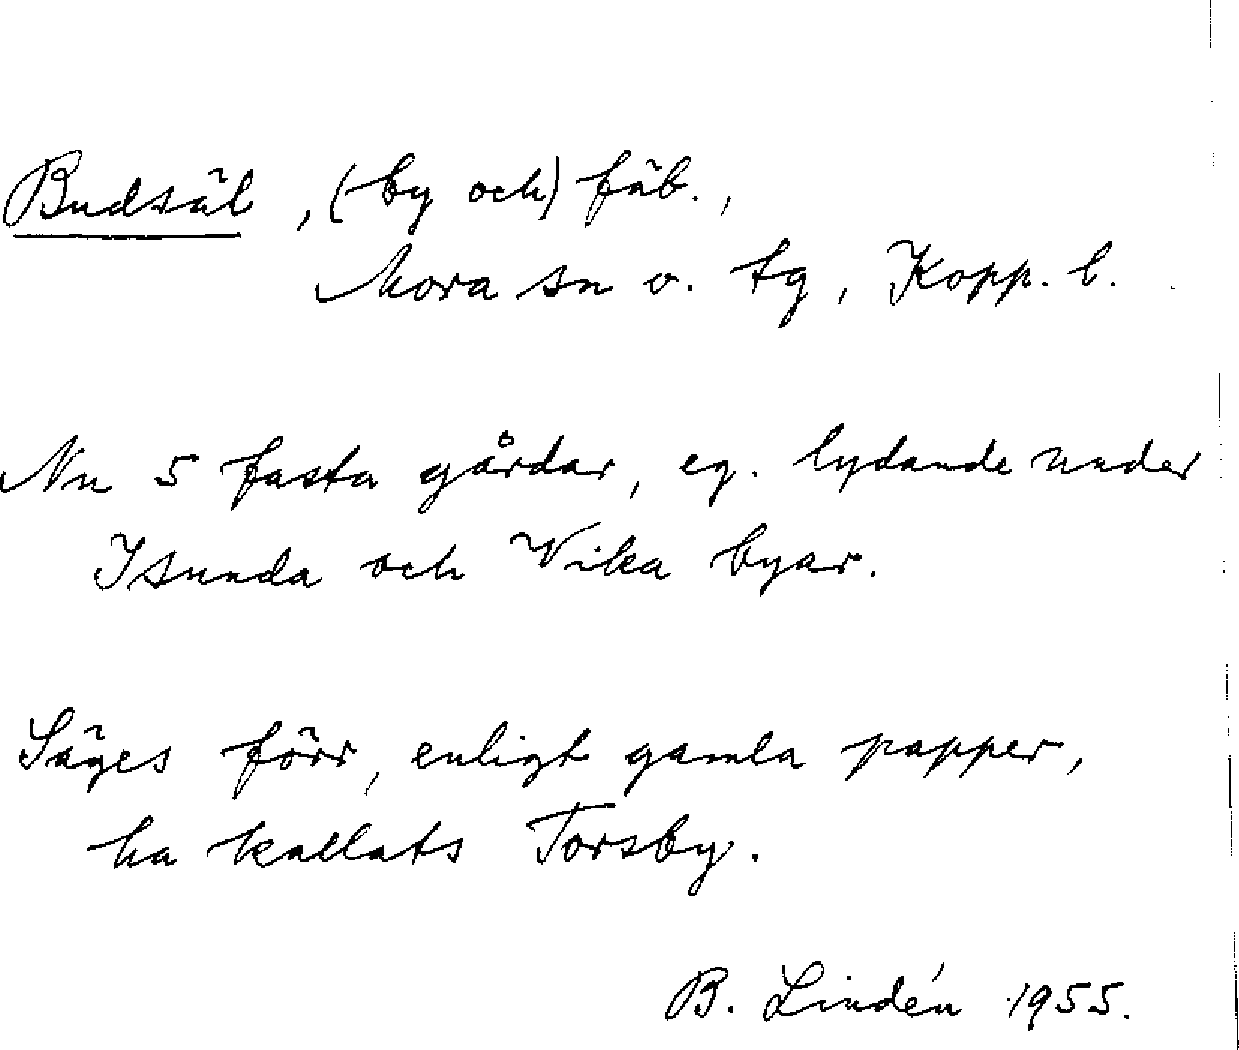 Budsäl, (by och) fäb.,
Mora sn o. tg, Kopp. l.
Nu 5 fasta gårdar, eg. lydande under
Isunda och Vika byar.
Säges förr, enligt gamla papper,
ha kallats Torsby.
B. Lindén 1955.